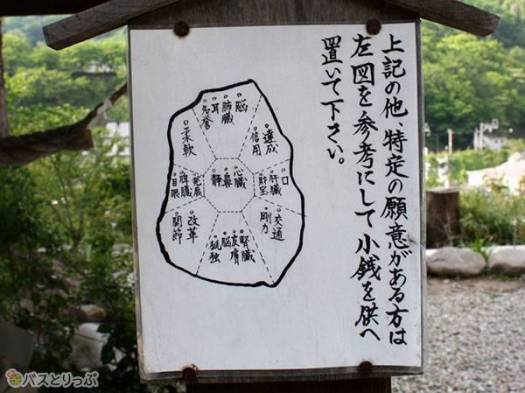 上記の他、特定の願意がある方は
左図を参考にして小銭を供へ
置いて下さい。
脳
肺臓
耳
名誉
達成
信用
柔軟
口
肝臓
財宝
心臓
鼻
静
発展
脾臓
目眼
交通
剛力
改革
関節
腎臓
皮膚
脳
孤独
バスとりっぷ